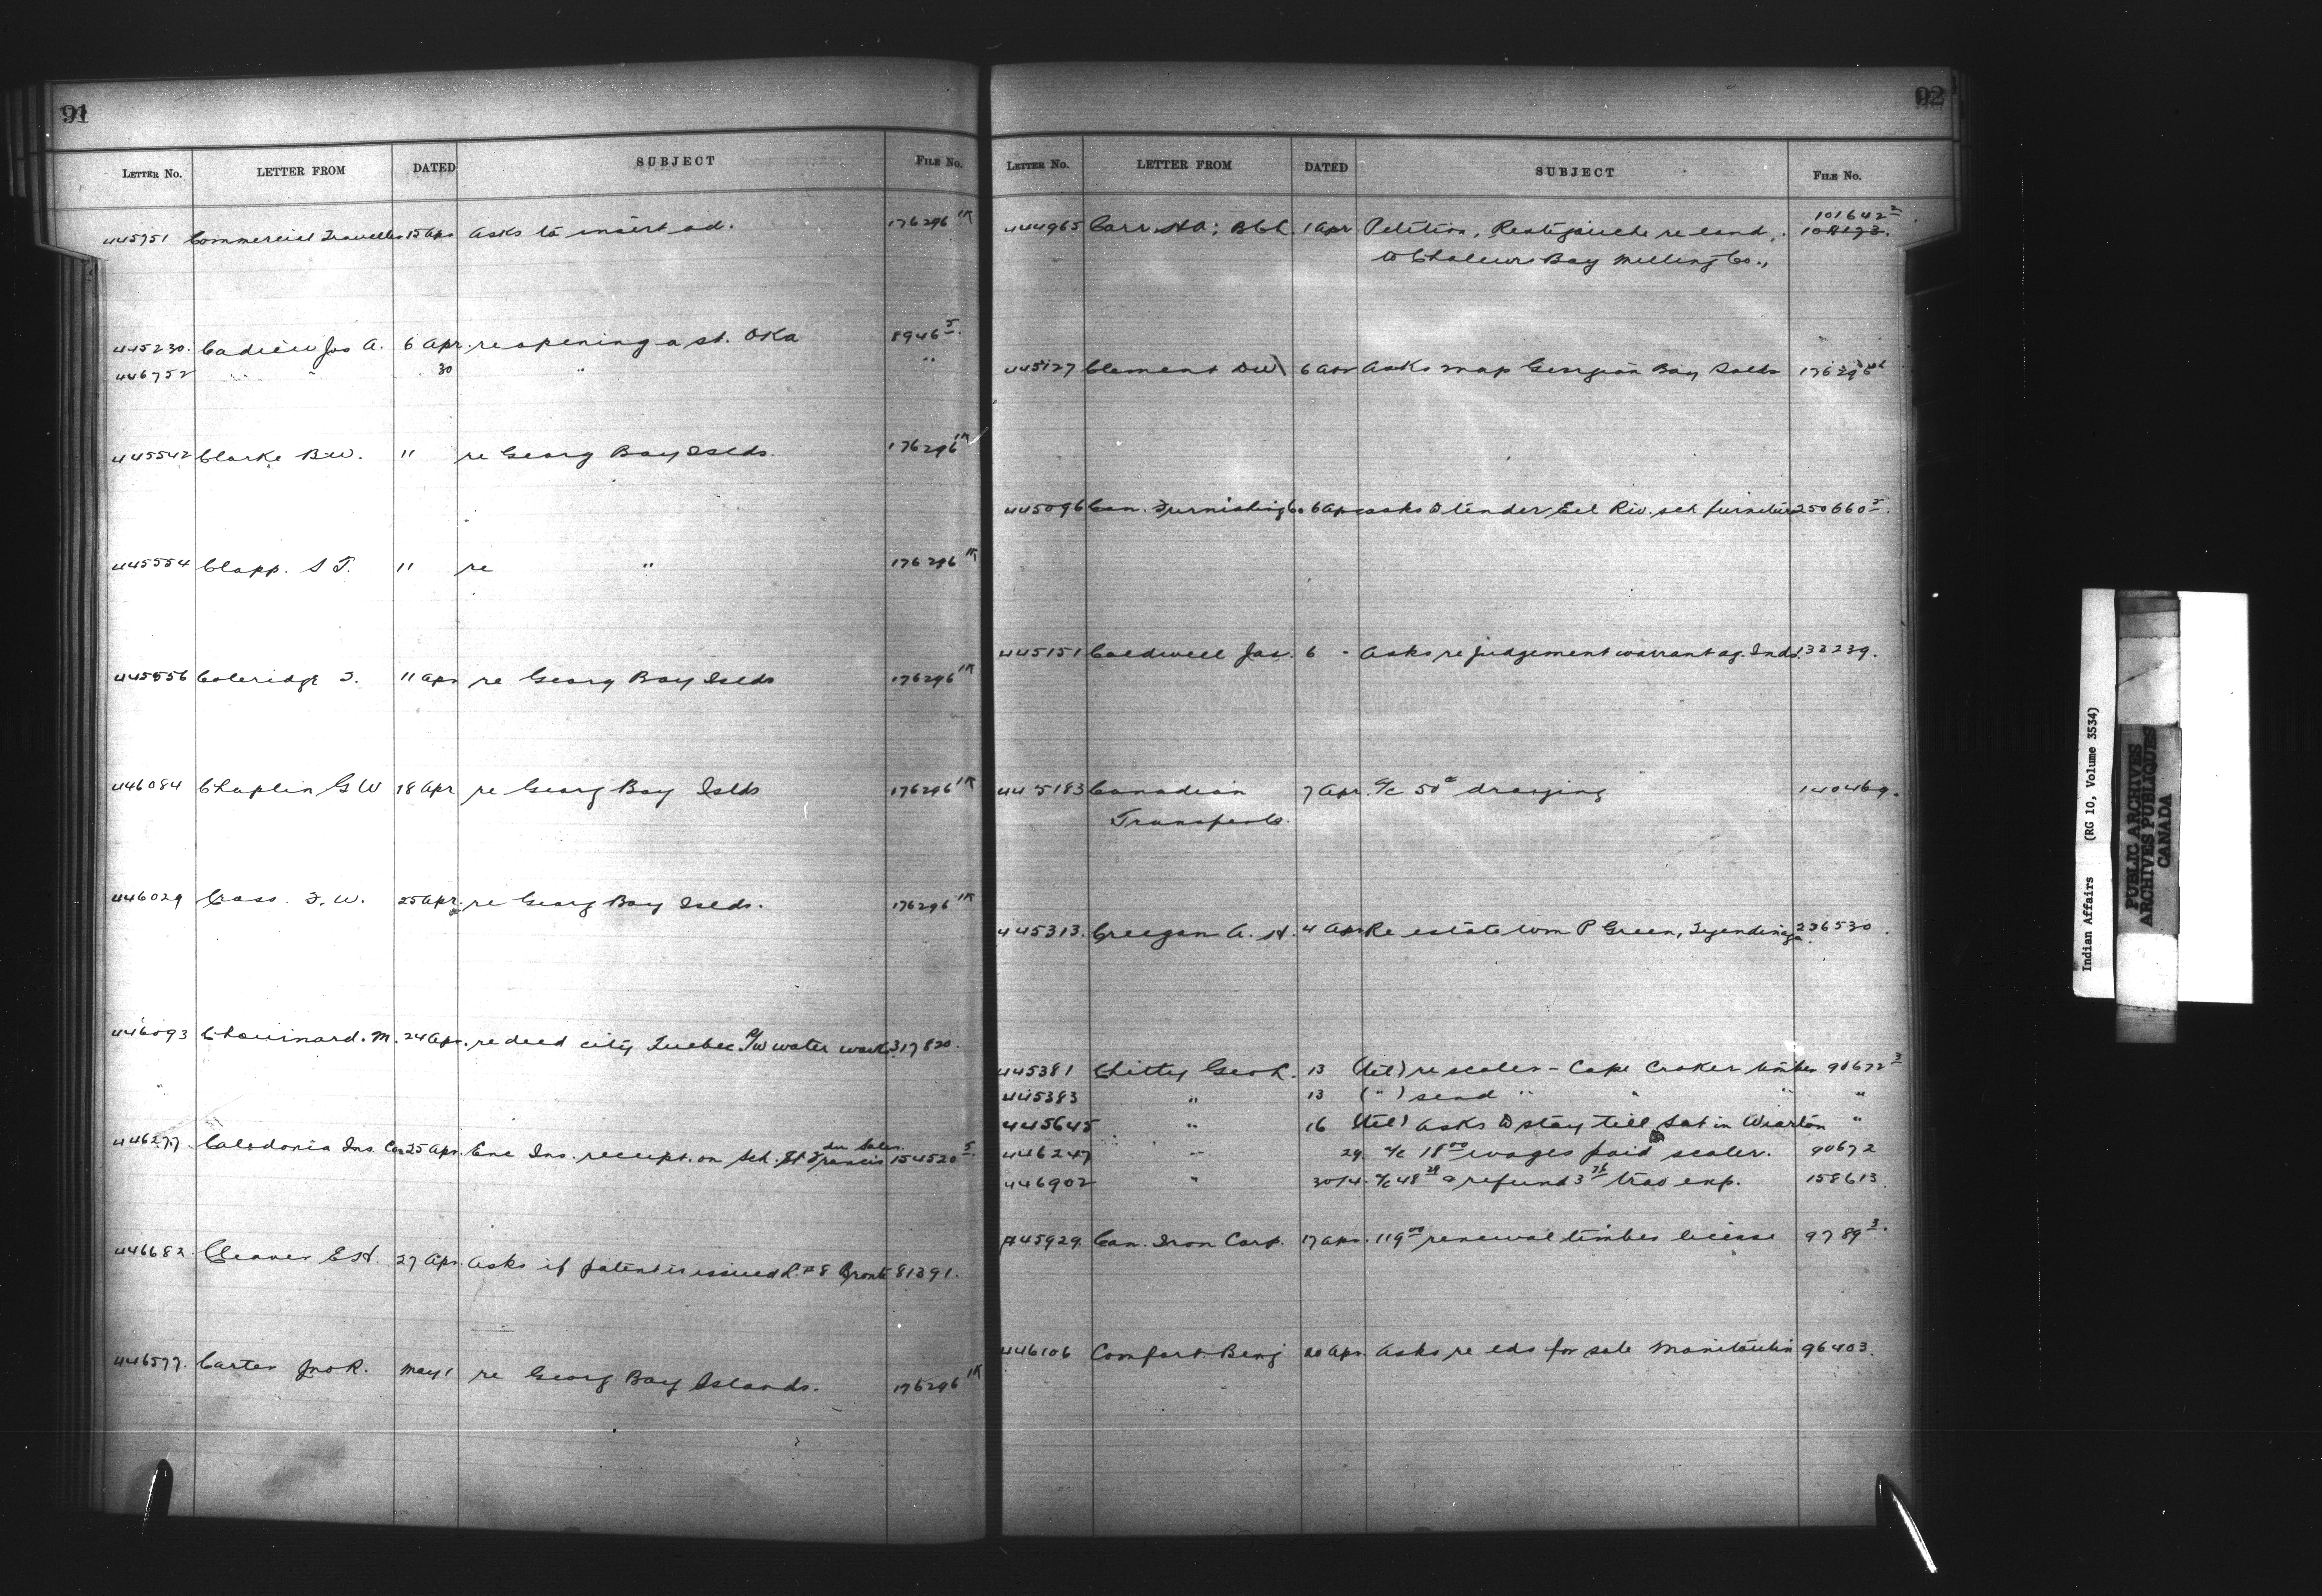 91
LETTER NO. LETTER FROM DATED SUBJECT FILE No.
445751 Commercial Traveller 15 Apr Asks to insert ad. 176296 1K
445230. Cadieu Jos A. 6 Apr. re opening a st. Oka 8946 5.
446752 " " 30 " "
445542 Clarke B.W. 11 re Georg Bay Islds. 176296 1K
445554 Clapp. S T. 11 re " 176296 1K
445556 Coleridge F. 11 Apr re Georg Bay Islds 176296 1K
446084 Chaplin G W 18 Apr re Georg Bay Islds 176296 1K
446029 Cross. F. W. 25 Apr. re Georg Bay Islds. 176296 1K
446093 Chouinard. M. 24 Apr. re deed city Quebec. R/W water works 317820.
du Sales.
446277. Caledonia Ins. Co 25 Apr. Enc Ins. receipt. on sch. St Francis 154520 5.
446682. Cleaver E H. 27 Apr. Asks if patent is issued L. # 8 Bronte 81391.
446577. Carter Jno R. May 1 re Georg Bay Islands. 176296 1K
92
LETTER NO. LETTER FROM DATED SUBJECT FILE No.
101642 2
444965 Carr. 1 Apr Petition, Restigouche re land, 108173.
to Chaleurs Bay Milling Co.,
445127 Clement DW 6 Apr Asks map Georgian Bay Islds 176296
445096 Can. Furnishing Co 6 Apr asks to tender Eel Riv. sch furniture 250660 5.
445151 Caldwell Jas. 6 - Asks re judgement warrant ag. Inds. 133239.
445183 Canadian 7 Apr. a/c 50c draying 140469.
Transfer Co.
445313. Creegan A. H. 4 Apr Re estate Wm P Green, Tyendinaga 236530.
445381 Chitty Geo L. 13 (tel) re scaler - Cape Croker timber 90672 3
445383 " 13 ( " ) send " " " "
445645 " 16 (tel) asks to stay till Sat in Wiarton "
446247 " 29. a/c 18 00 wages paid scaler. 90672
446902 " 30/4. a/c 48 & refund 3 trav exp. 158613.
445929. Can. Iron Corp. 17 Apr. 119 00 renewal timber license 9789 3.
446106 Comfort Benj 20 Apr Asks re lds for sale Manitoulin 96403.
Indian Affairs (RG 10, Volume 3534)
PUBLIC ARCHIVES
ARCHIVES PUBLIQUES
CANADA